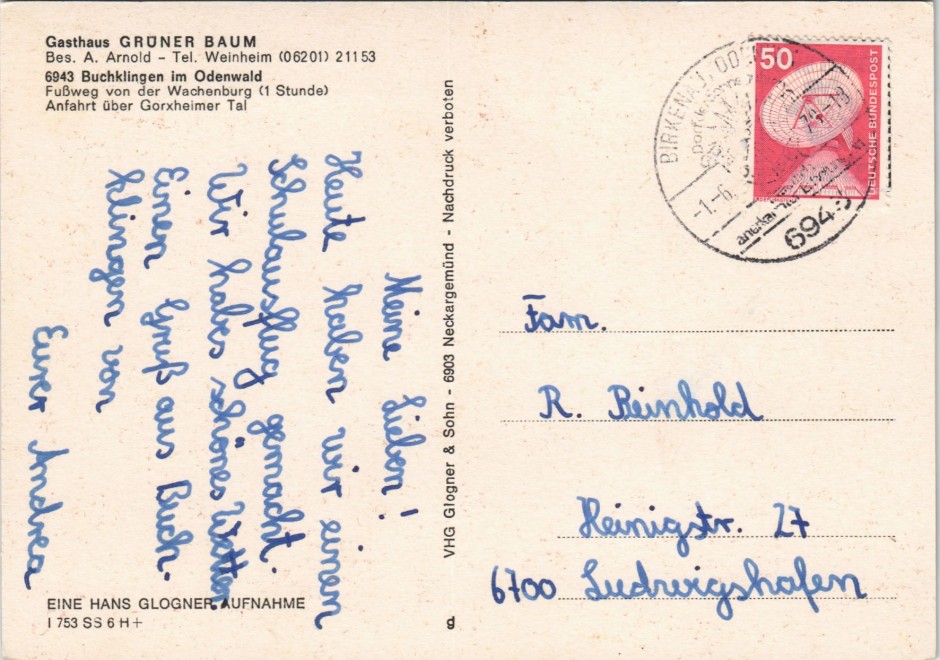 Gasthaus GRÜNER BAUM
Bes. A. Arnold - Tel. Weinheim (06201) 21153
6943 Buchklingen im Odenwald
Fußweg von der Wachenburg (1 Stunde)
Anfahrt über Gorxheimer Tal
Meine Lieben!
Heute haben wir einen
Schulausflug gemacht.
Wir haben schönes Wetter.
Einen Gruß aus Buch-
klingen von
Eurer Andrea
EINE HANS GLOGNER AUFNAHME
I 753 SS 6 H+
VHG Glogner & Sohn - 6903 Neckargemünd - Nachdruck verboten
g
50
DEUTSCHE BUNDESPOST
BIRKENAU, OD
-1.-6.
79.-18
694
Fam.
R. Reinhold
Heinigstr. 27
6700 Ludwigshafen